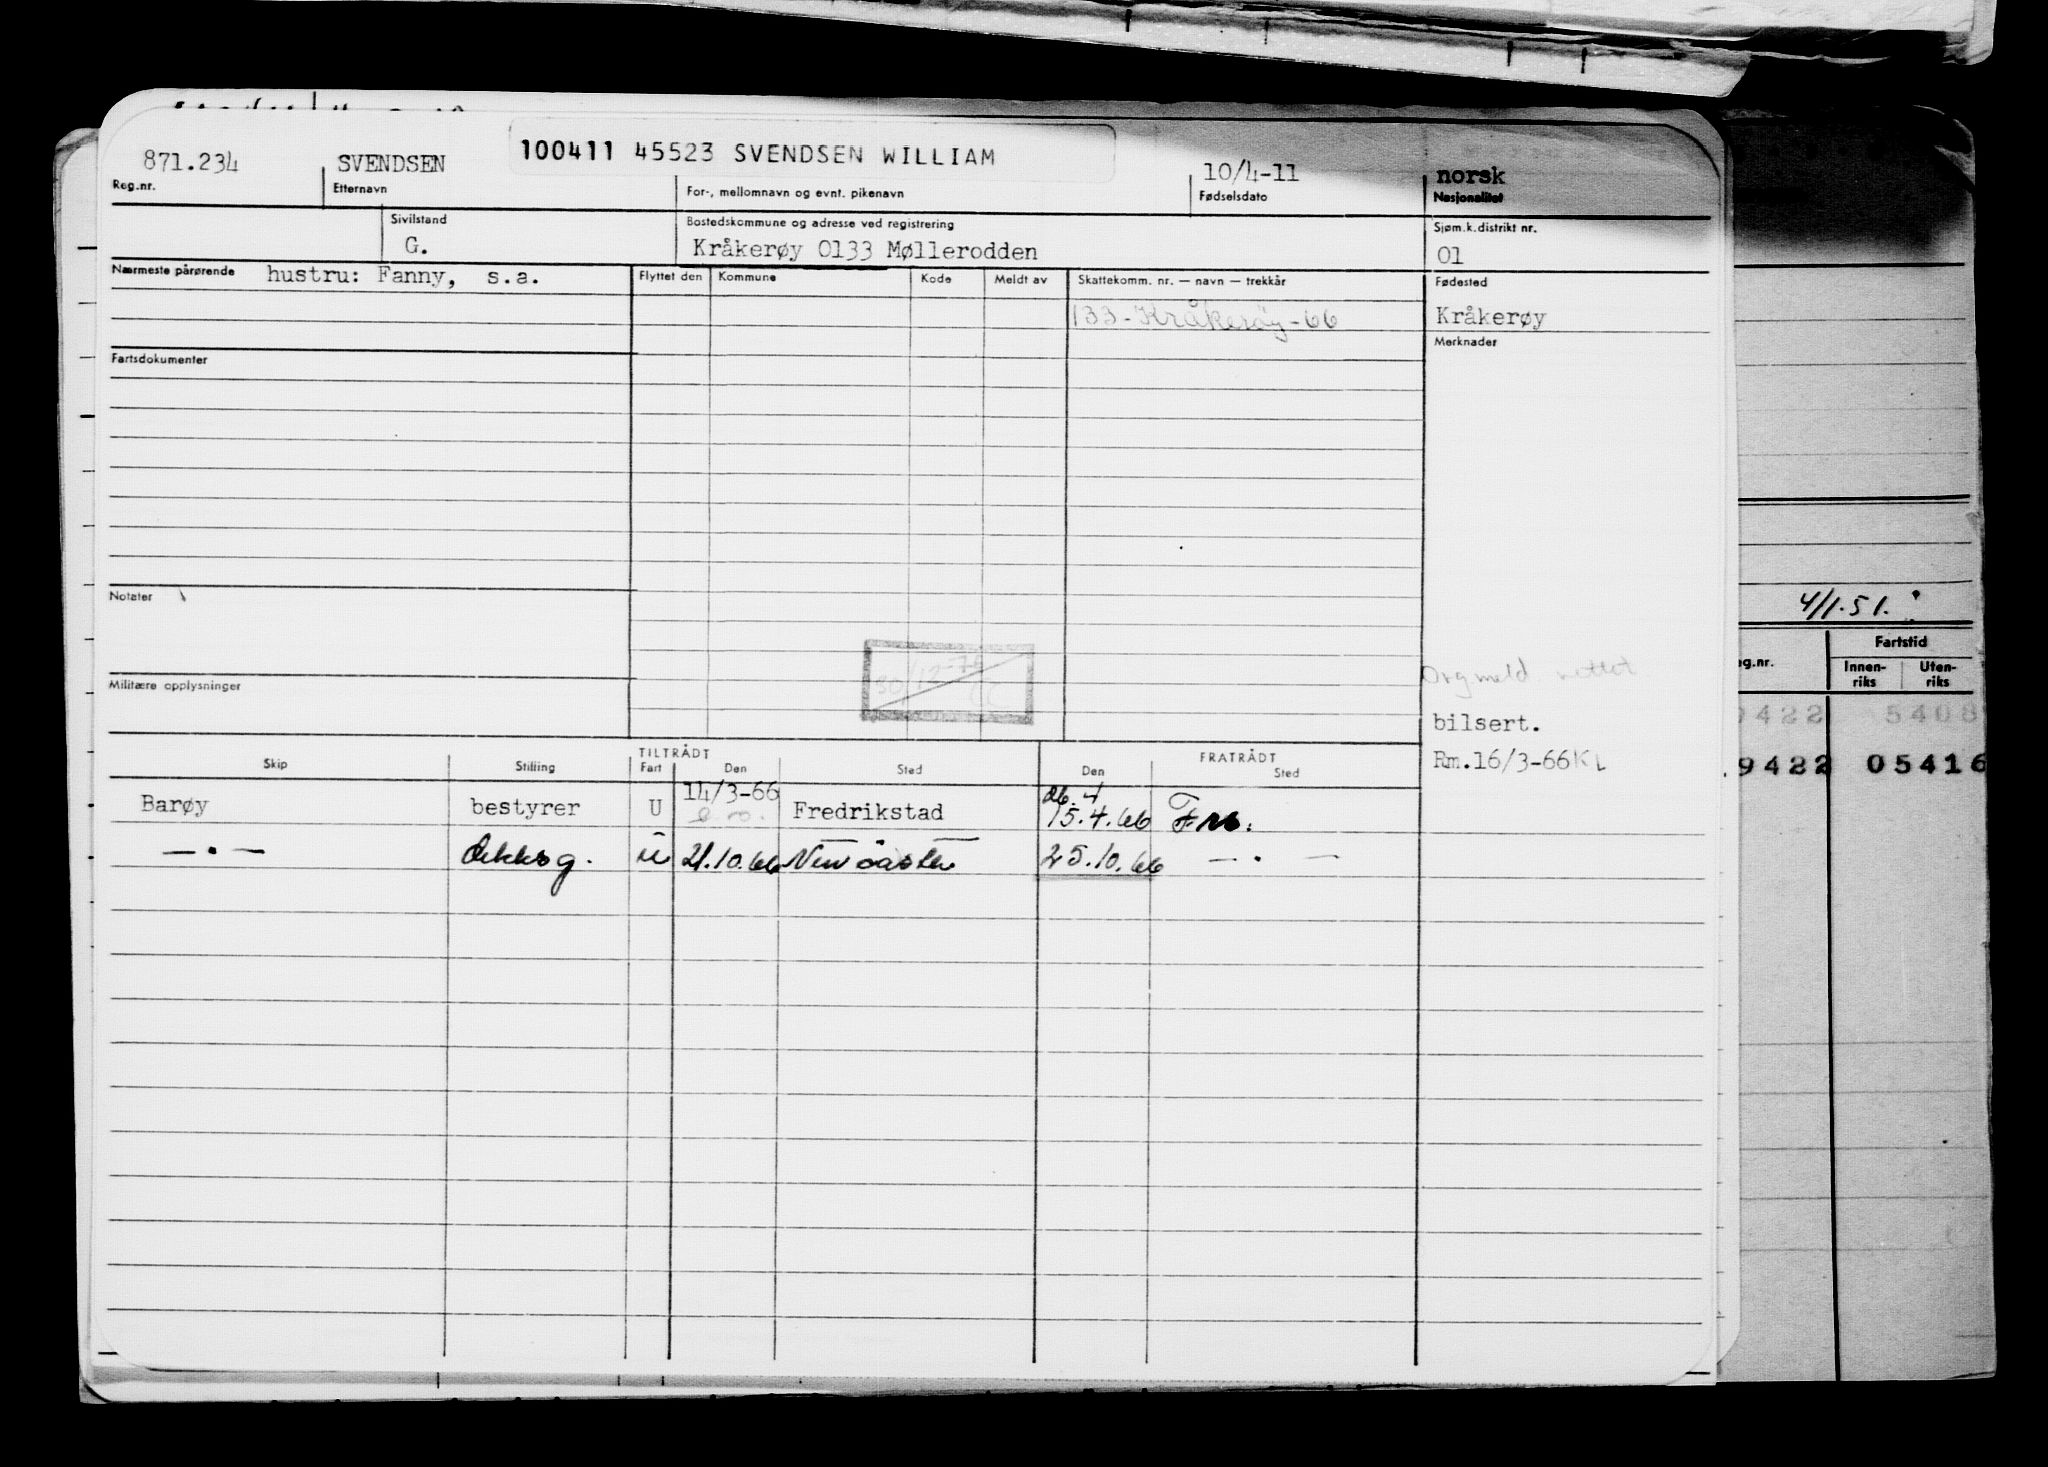 100411 45523 SVENDSEN WILLIAM
871.234 SVENDSEN 10/4-11 norsk
Reg.nr. Etternavn For-, mellomnavn og evnt. pikenavn Fødselsdato Nasjonalitet
Sivilstand Bostedskommune og adresse ved registrering Sjøm.k.distrikt nr.
G. Kråkerøy 0133 Møllerodden 01
Nærmeste pårørende hustru: Fanny, s.a. Flyttet den Kommune Kode Meldt av Skattekomm. nr. — navn — trekkår Fødested
133-Kråkerøy-66 Kråkerøy
Merknader
Fartsdokumenter
Notater
4/1.51.
Fartstid
Innen- Uten-
riks riks
30/12-76
Militære opplysninger
Org meld rettet
9422 5408
bilsert.
Rm.16/3-66KL
9422 05416
TILTRÅDT FRATRÅDT
Skip Stilling Fart Den Sted Den Sted
Barøy bestyrer U 14/3-66 Fredrikstad 26.4 15.4.66
— • — dekksg. U 21.10.66 25.10.66 — • —